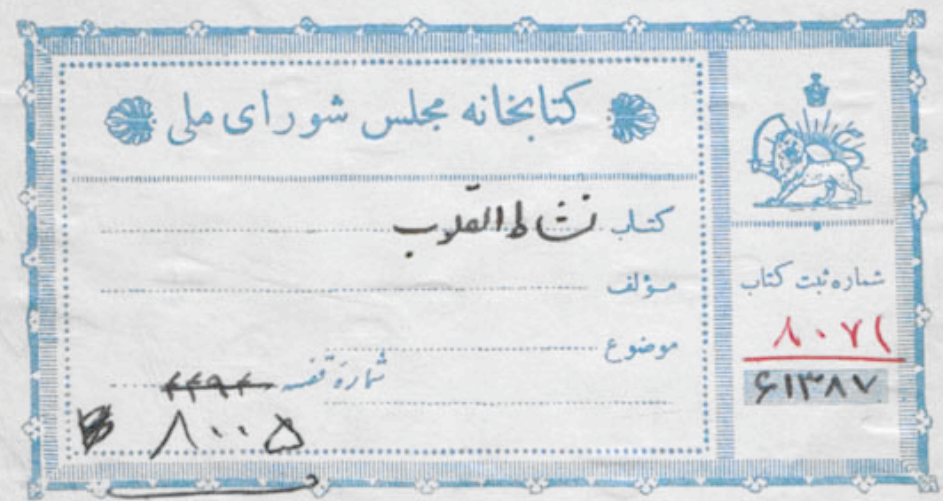 کتابخانه مجلس شورای ملی
کتاب نشاط القلوب
مؤلف
موضوع
شماره قفسه
۸۰۰۵
شماره ثبت کتاب
۸۰۷۱
۶۱۳۸۷